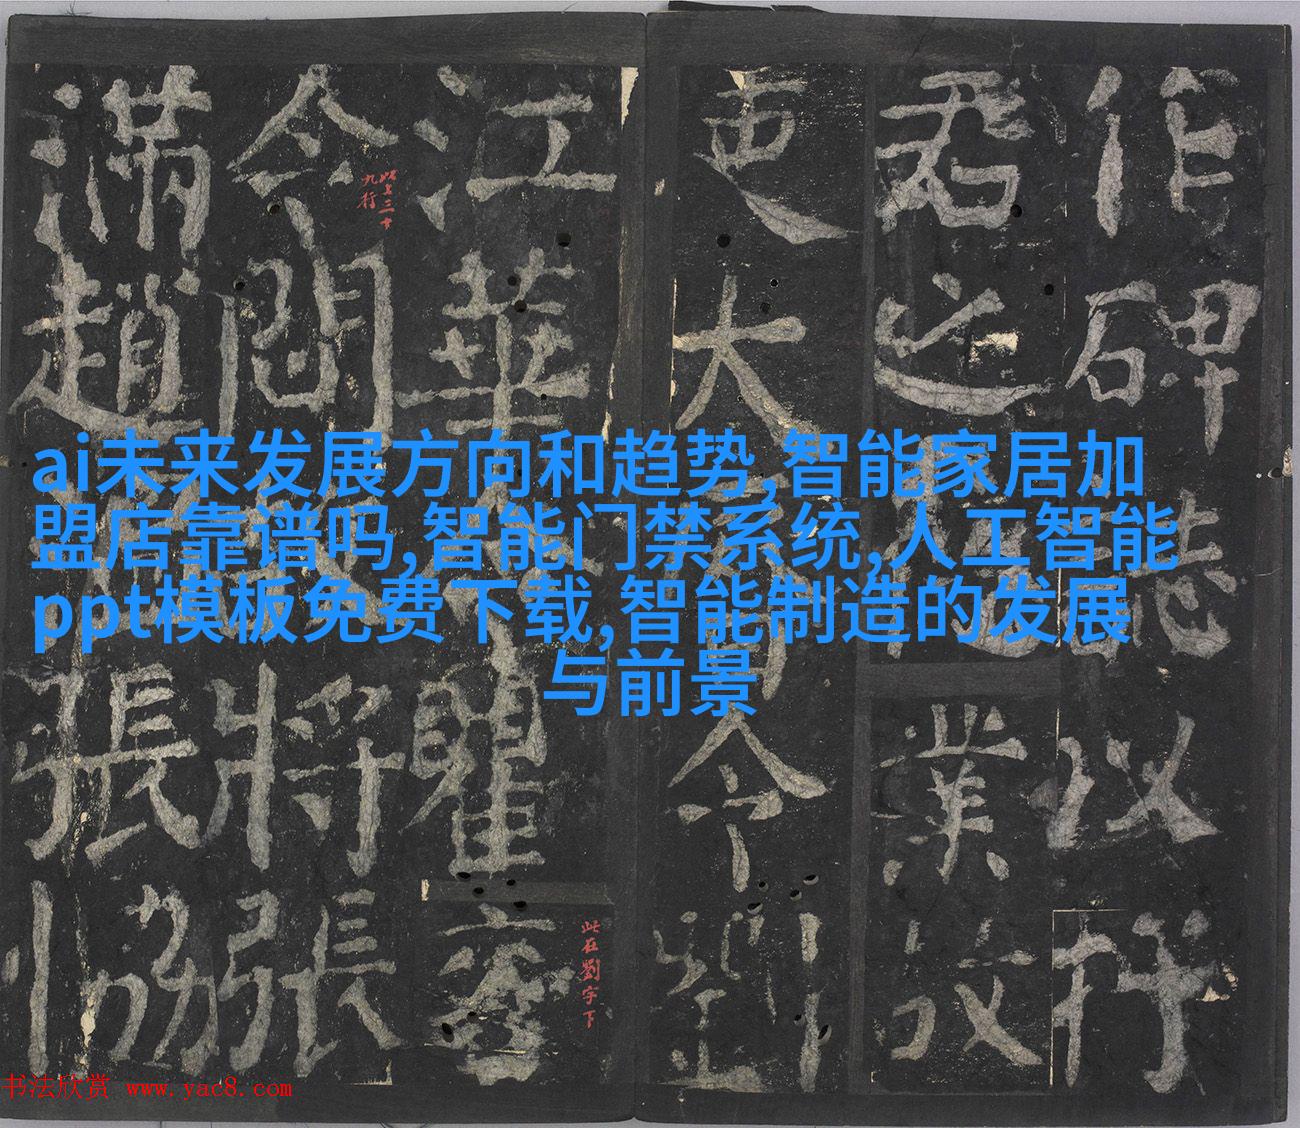 ai未来发展方向和趋势,智能家居加
盟店靠谱吗,智能门禁系统,人工智能
ppt模板免费下载,智能制造的发展
与前景
作碑以
君之業
吏大令劉
江華瞿
令間將張
滿趙張協
九行
此在劉字下
书法欣赏 www.yac8.com